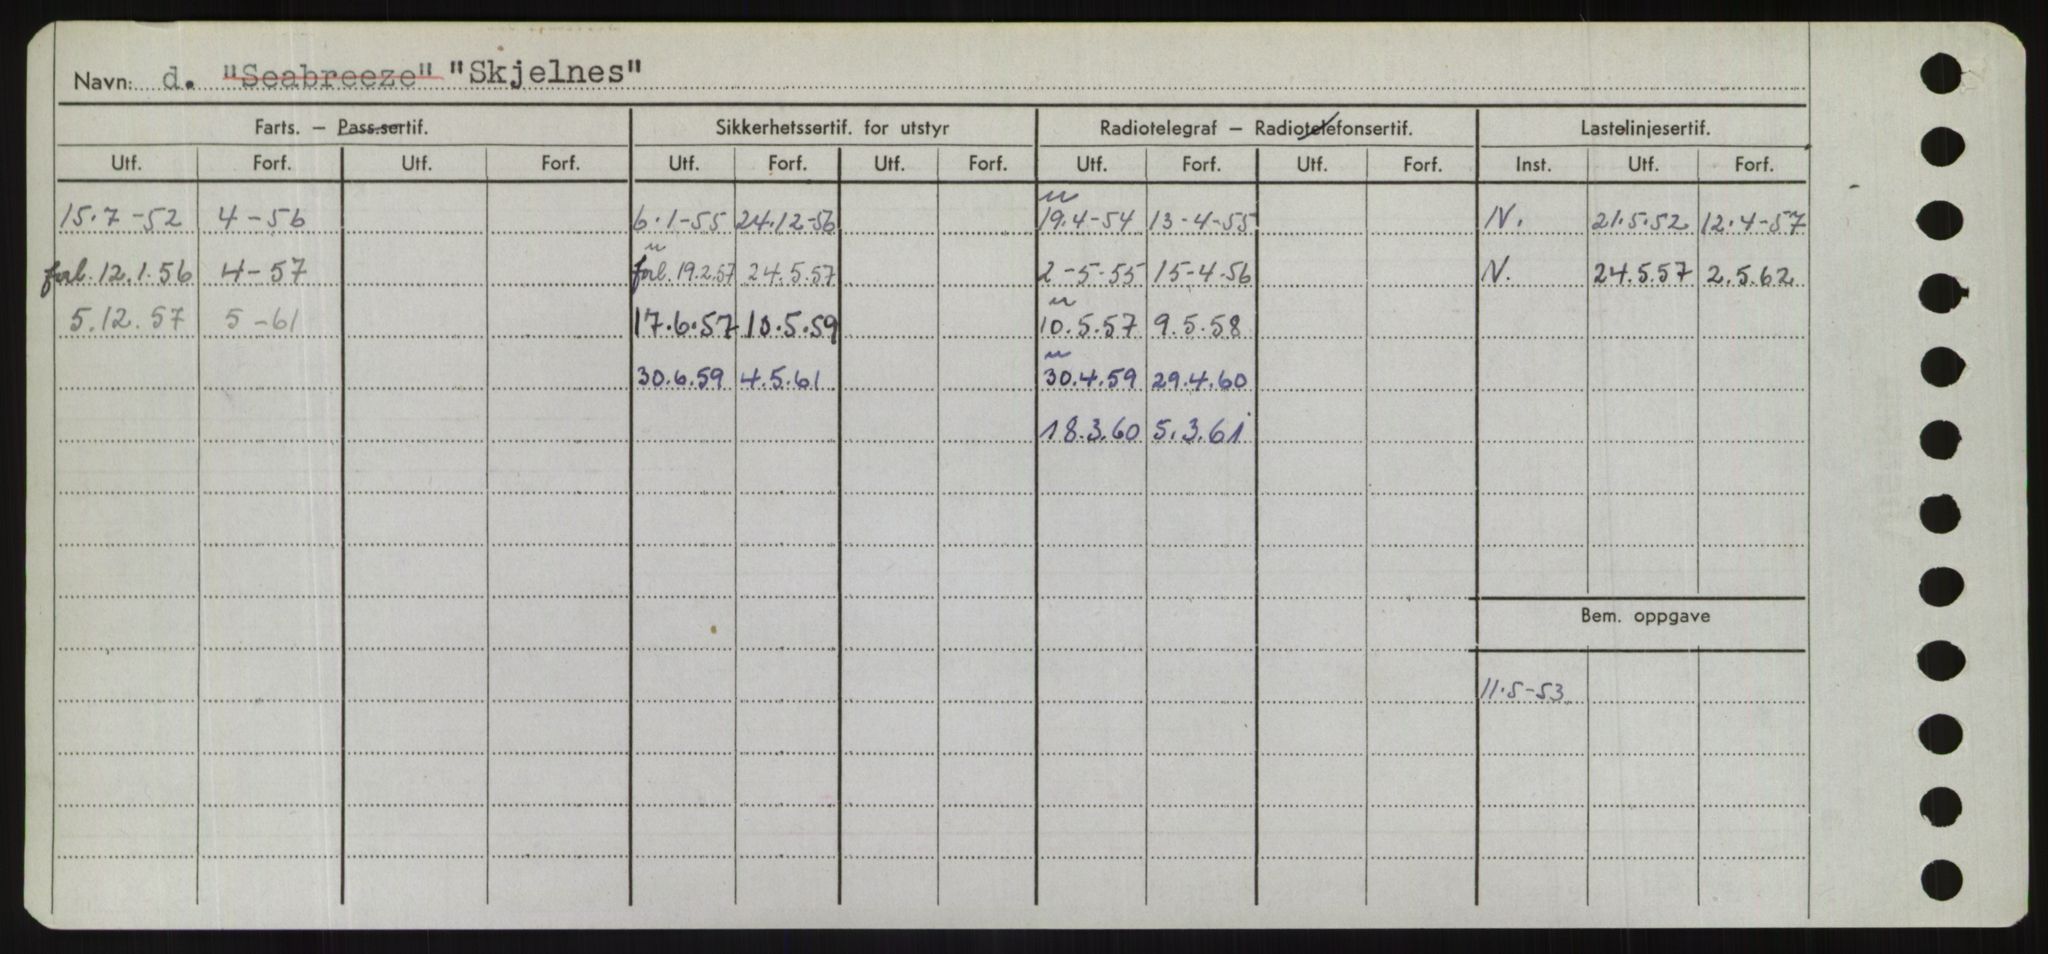 Navn: d. "Seabreeze" "Skjelnes"
Farts. – Pass.sertif. Sikkerhetssertif. for utstyr Radiotelegraf – Radiotelefonsertif. Lastelinjesertif.
Utf. Forf. Utf. Forf. Utf. Forf. Utf. Forf. Utf. Forf. Utf. Forf. Inst. Utf. Forf.
15.7-52 4-56 6.1-55 24.12-56 19.4-54 13-4-55 N. 21.5.52 12.4-57
forl. 12.1.56 4-57 forl. 19.2.57 24.5.57 2-5-55 15-4-56 N. 24.5.57 2.5.62
5.12.57 5-61 17.6.57 10.5.59 10.5.57 9.5.58
30.6.59 4.5.61 30.4.59 29.4.60
18.3.60 5.3.61
Bem. oppgave
11.5-53